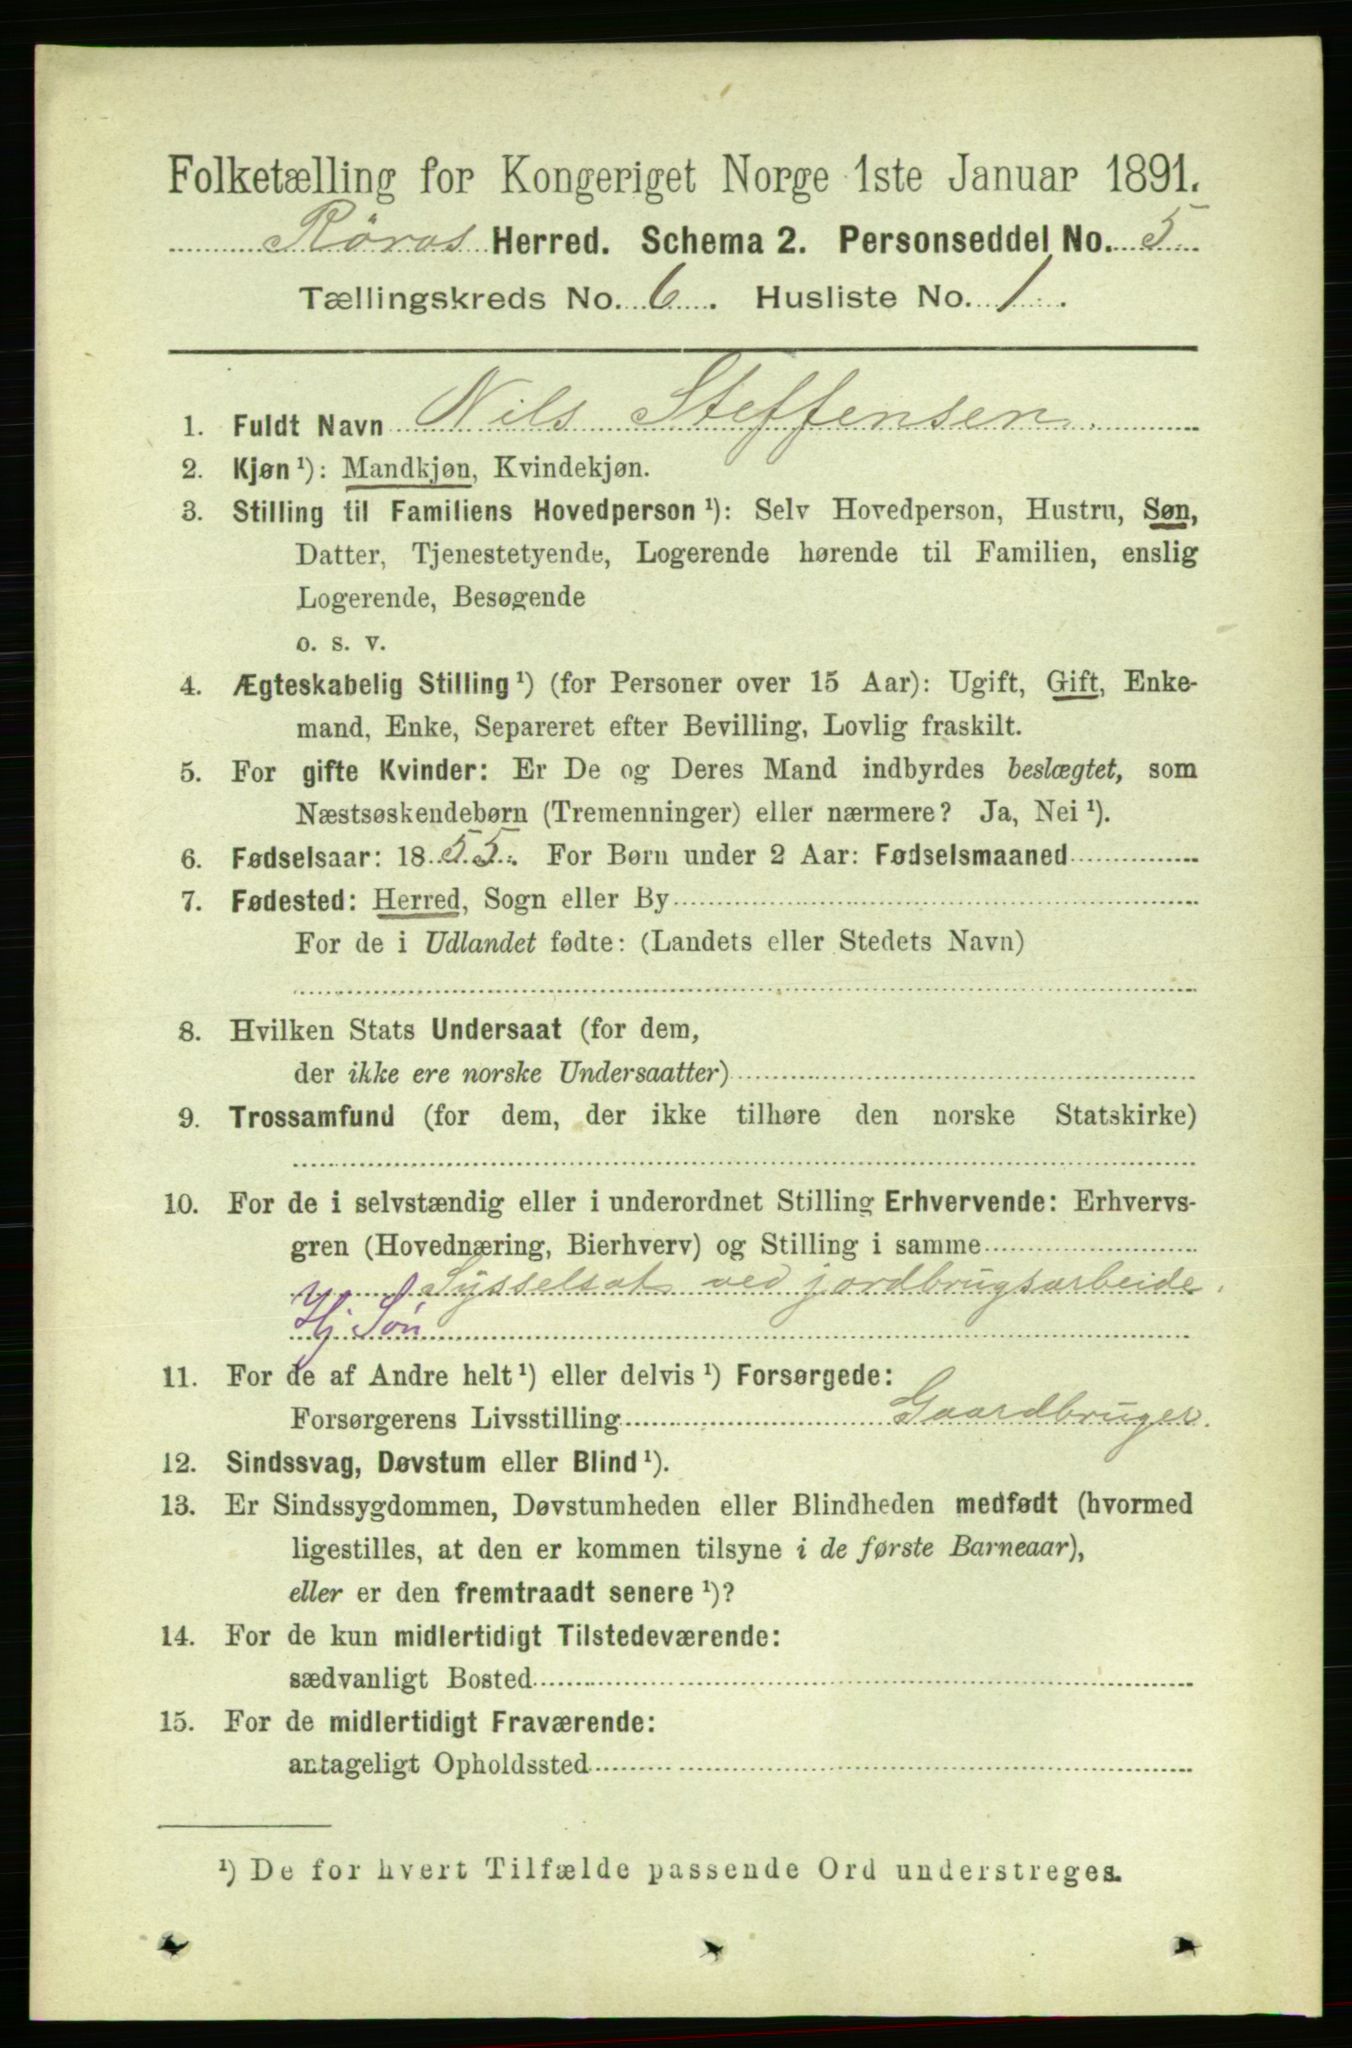 Folketælling for Kongeriget Norge 1ste Januar 1891.
Röros Herred. Schema 2. Personseddel No. 5
Tællingskreds No. 6. Husliste No. 1.
1. Fuldt Navn Nils Steffensen.
2. Kjøn¹): Mandkjøn, Kvindekjøn.
3. Stilling til Familiens Hovedperson¹): Selv Hovedperson, Hustru, Søn,
Datter, Tjenestetyende, Logerende hørende til Familien, enslig
Logerende, Besøgende
o. s. v.
4. Ægteskabelig Stilling¹) (for Personer over 15 Aar): Ugift, Gift, Enke-
mand, Enke, Separeret efter Bevilling, Lovlig fraskilt.
5. For gifte Kvinder: Er De og Deres Mand indbyrdes beslægtet, som
Næstsøskendebørn (Tremenninger) eller nærmere? Ja, Nei¹).
6. Fødselsaar: 1855. For Børn under 2 Aar: Fødselsmaaned
7. Fødested: Herred, Sogn eller By
For de i Udlandet fødte: (Landets eller Stedets Navn)
8. Hvilken Stats Undersaat (for dem,
der ikke ere norske Undersaatter)
9. Trossamfund (for dem, der ikke tilhøre den norske Statskirke)
10. For de i selvstændig eller i underordnet Stilling Erhvervende: Erhvervs-
gren (Hovednæring, Bierhverv) og Stilling i samme
Sysselsat ved jordbrugsarbeide.
Hj Søn
11. For de af Andre helt¹) eller delvis¹) Forsørgede:
Forsørgerens Livsstilling Gaardbruger.
12. Sindssvag, Døvstum eller Blind¹).
13. Er Sindssygdommen, Døvstumheden eller Blindheden medfødt (hvormed
ligestilles, at den er kommen tilsyne i de første Barneaar),
eller er den fremtraadt senere¹)?
14. For de kun midlertidigt Tilstedeværende:
sædvanligt Bosted
15. For de midlertidigt Fraværende:
antageligt Opholdssted
¹) De for hvert Tilfælde passende Ord understreges.